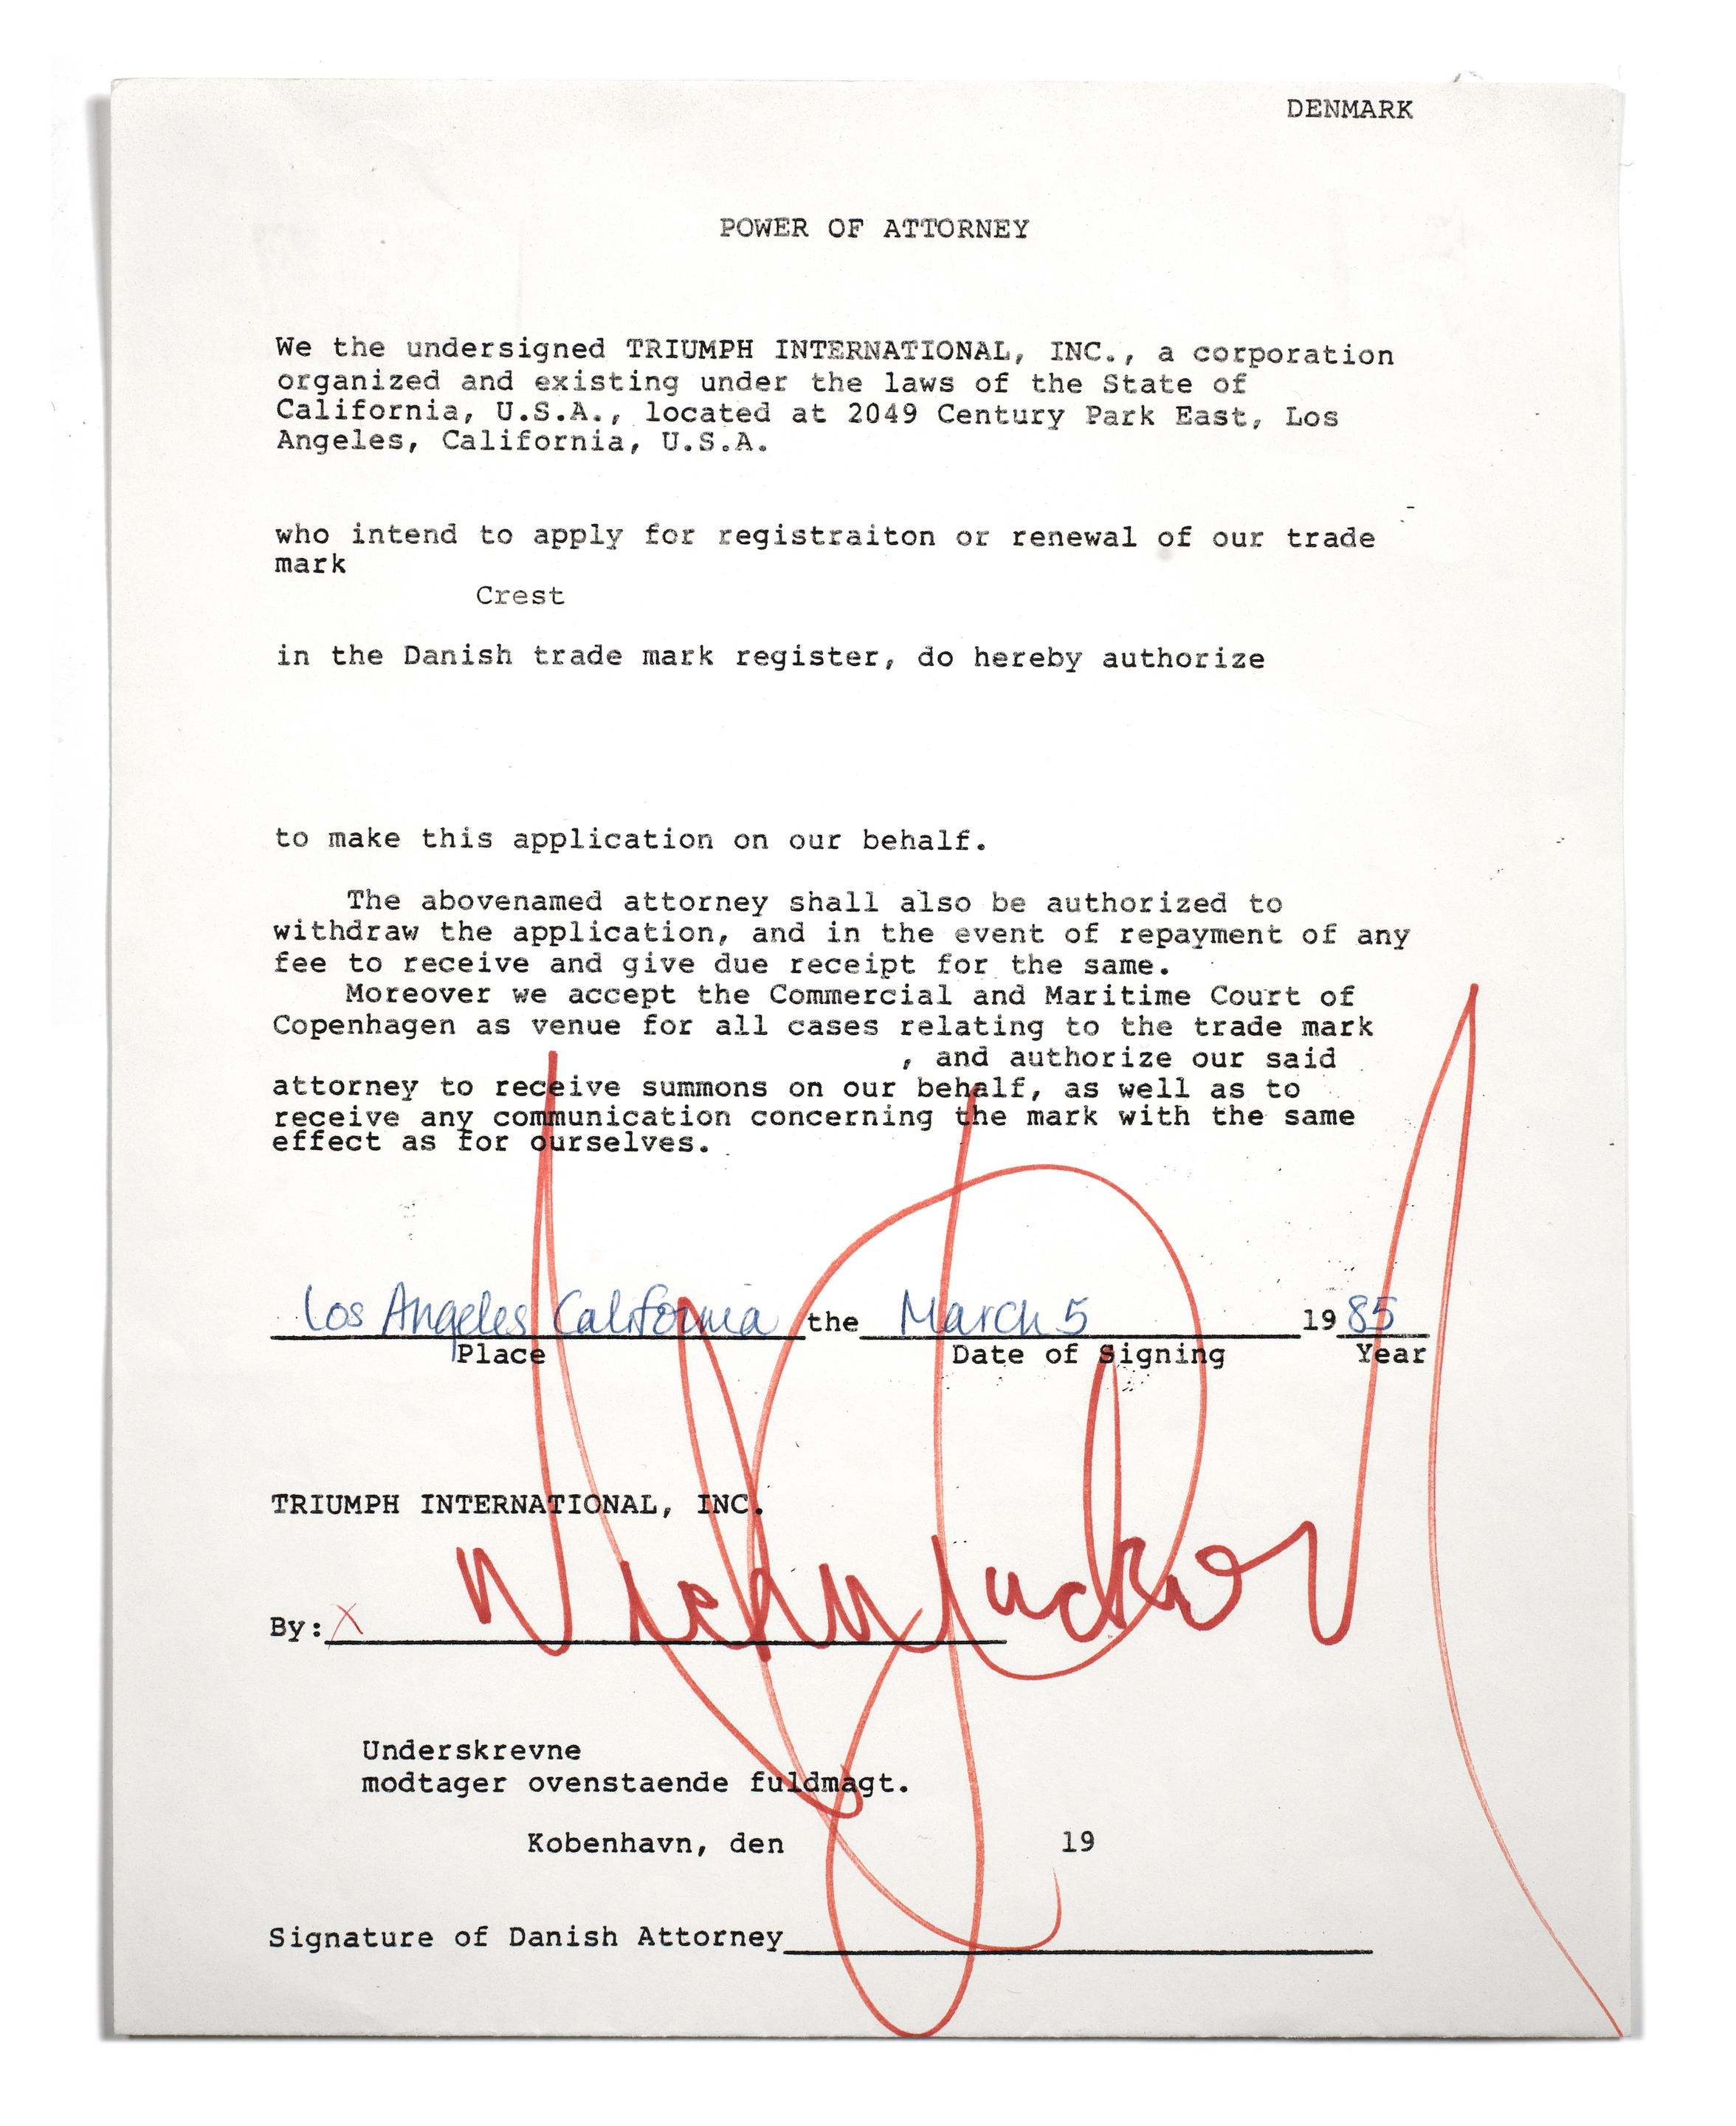 DENMARK
POWER OF ATTORNEY
We the undersigned TRIUMPH INTERNATIONAL, INC., a corporation
organized and existing under the laws of the State of
California, U.S.A., located at 2049 Century Park East, Los
Angeles, California, U.S.A.
who intend to apply for registraiton or renewal of our trade
mark
Crest
in the Danish trade mark register, do hereby authorize
to make this application on our behalf.
The abovenamed attorney shall also be authorized to
withdraw the application, and in the event of repayment of any
fee to receive and give due receipt for the same.
Moreover we accept the Commercial and Maritime Court of
Copenhagen as venue for all cases relating to the trade mark
, and authorize our said
attorney to receive summons on our behalf, as well as to
receive any communication concerning the mark with the same
effect as for ourselves.
Los Angeles California the March 5 1985
Place Date of Signing Year
TRIUMPH INTERNATIONAL, INC.
By: X
Underskrevne
modtager ovenstaende fuldmagt.
Kobenhavn, den 19
Signature of Danish Attorney